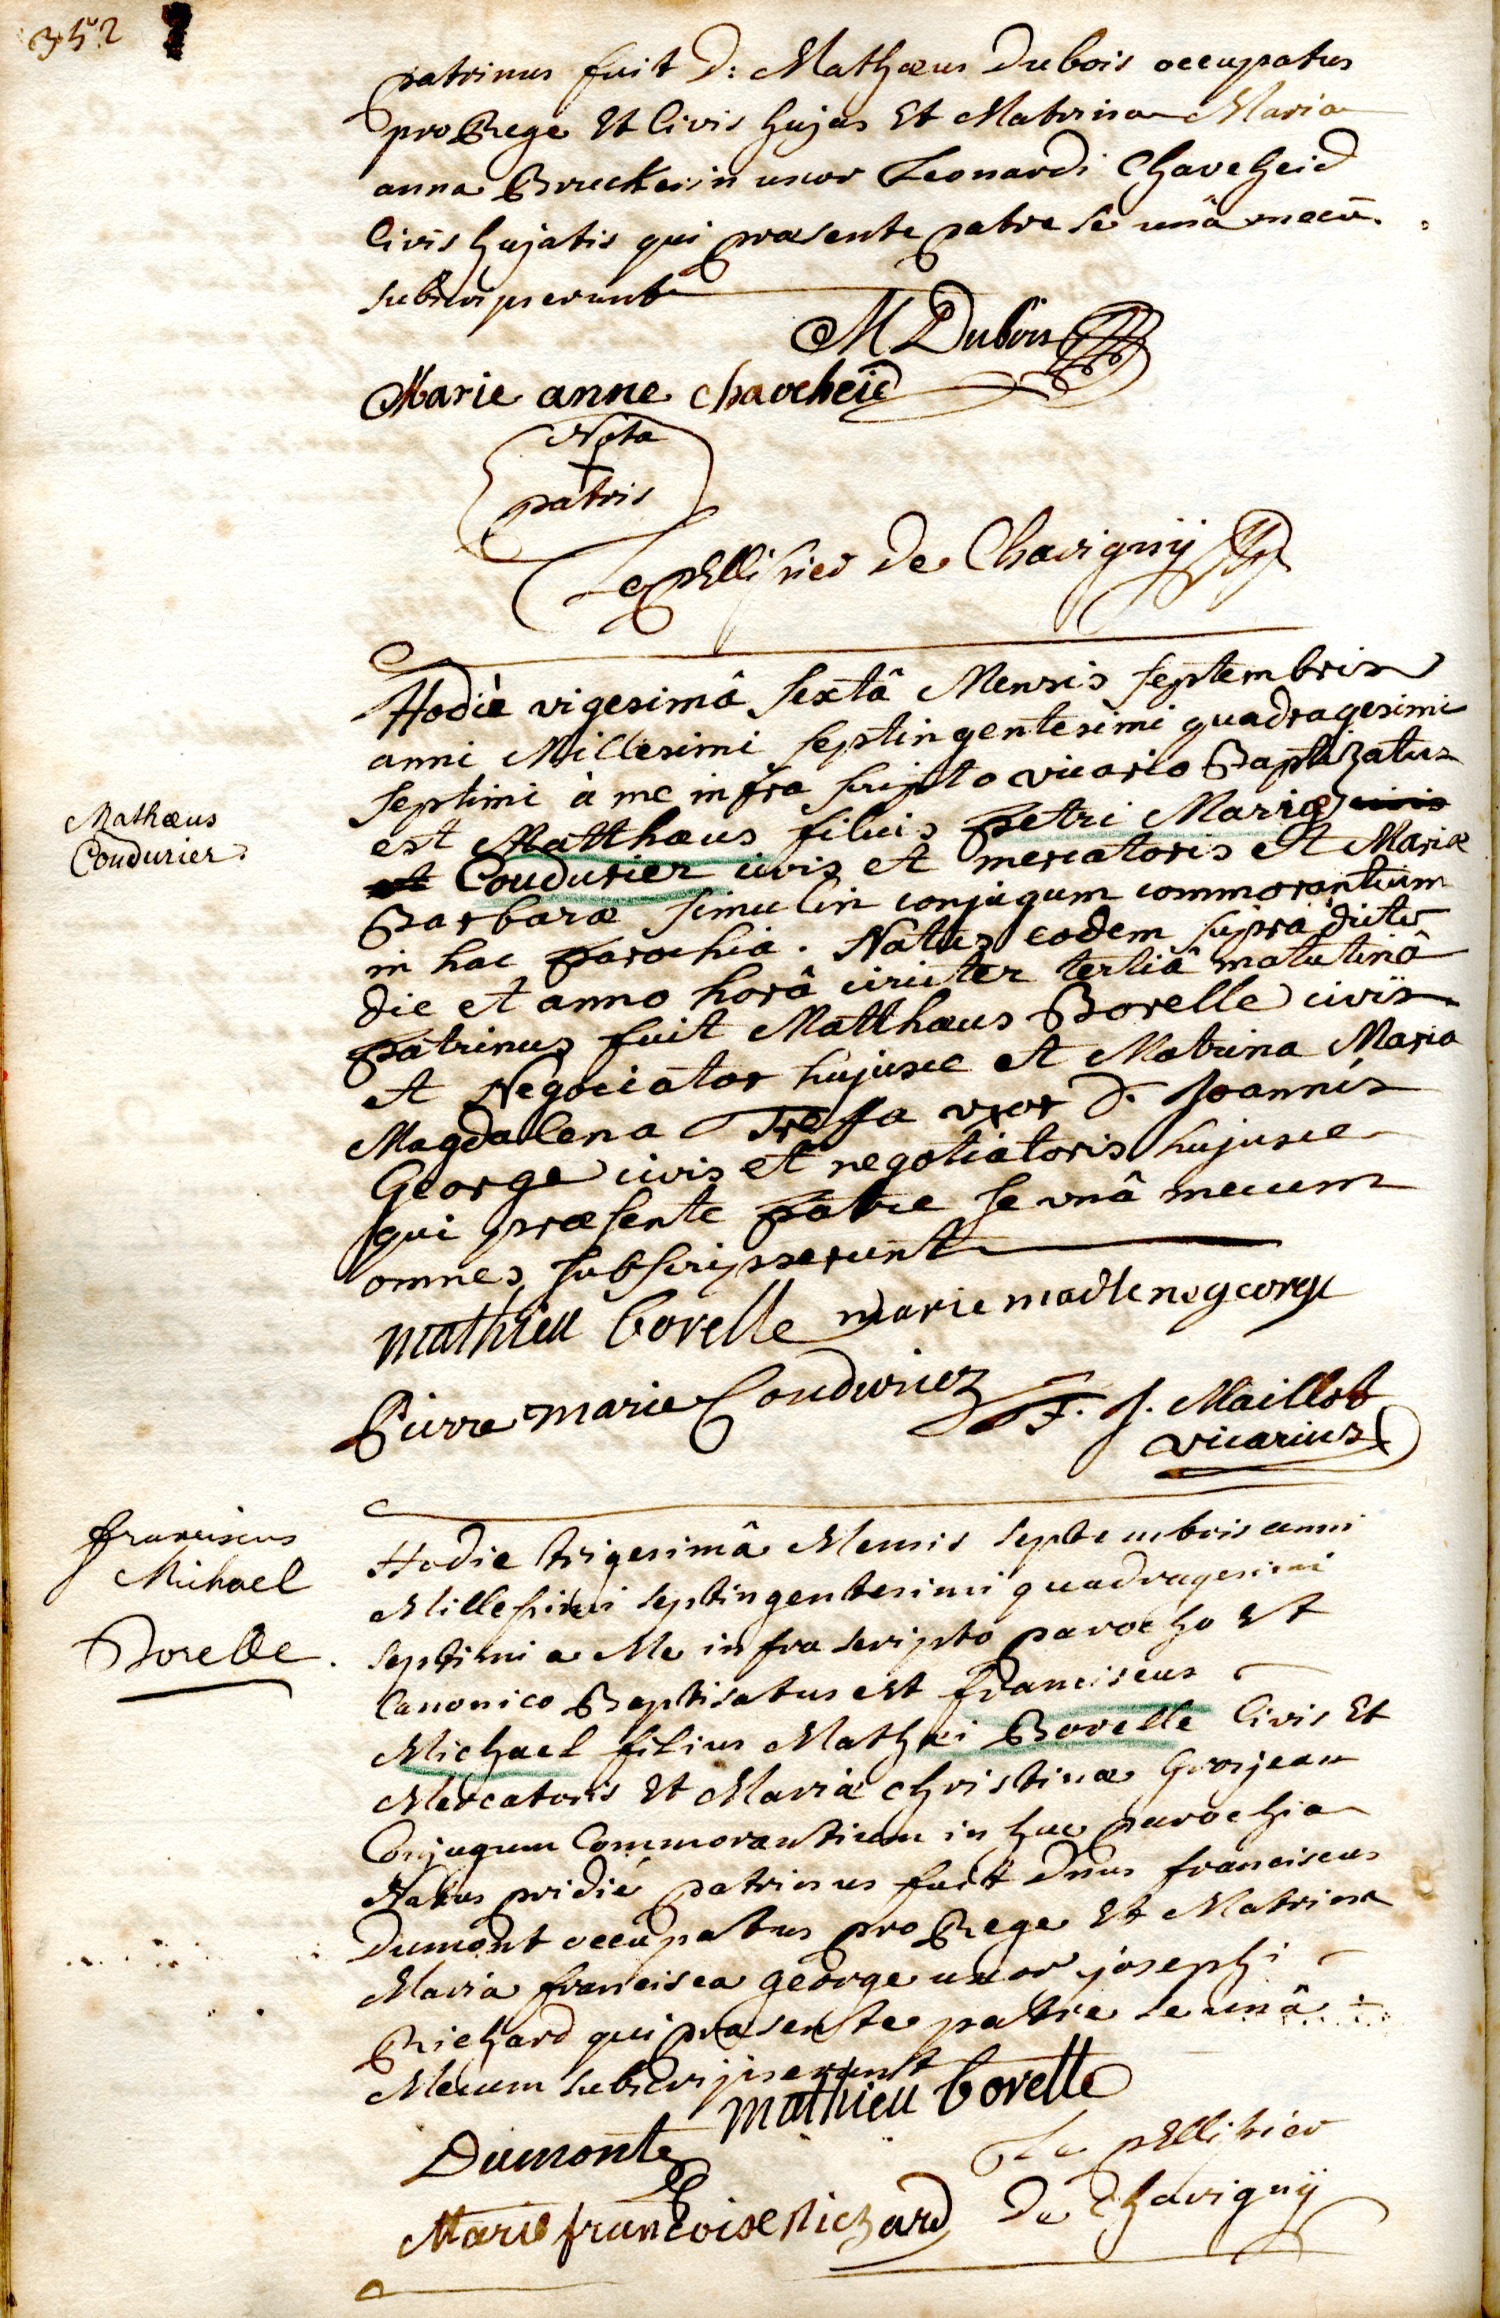 352
patrinus fuit D: Mathæus Dubois occupatus
pro Rege Et Civis hujas Et Matrina Maria
anna Bruckerin uxor Leonardi Chaveheid
Civis hujatis qui præsente patre se unâ mecū
subscripserunt
M Dubois
Marie anne chaveheid
Nota
+
patris
Le pellisier de Chavignÿ
Hodiè vigesimâ sextâ Mensis septembris
anni Millesimi septingentesimi quadragesimi
septimi à me infra scripto vicario Baptizatus
Mathæus
Coudurier.
est Matthæus filius petri Mariæ civis
et Coudurier civis et mercatoris et Mariæ
Barbaræ simulin conjugum commorantium
in hac parochia. Natus eodem supra dicto
die et anno horâ circiter tertiâ matutinâ
patrinus fuit Matthæus Borelle civis
et Negociator hujusce et Matrina Maria
Magdalena uxor D. Joannis
George civis et negotiatoris hujusce
qui præsente patre se vnâ mecum
omnes subscripserunt
mathieu borelle marie madlene george
Pierre marie Coudurier F. J. Maillot
vicarius
franciscus
Michael
Borelle.
Hodie trigesimâ Mensis septembris anni
Millesimi septingentesimi quadragesimi
septimi a Me infra scripto parocho Et
Canonico Baptisatus est franciscus
Michael filius Mathæi Borelle Civis Et
Mercatoris Et Mariæ christinæ Grosjean
Conjugum Commorantium in hac parochia
Natus pridié patrinus fuit Dnus franciscus
Dumont occupatus pro Rege Et Matrina
Maria francisca george uxor josephi
Richard qui præsente patre se unâ
Mecum subscripserunt
mathieu borelle
Dumont
Le pellisier
Marie francoise Richard De Chavignÿ